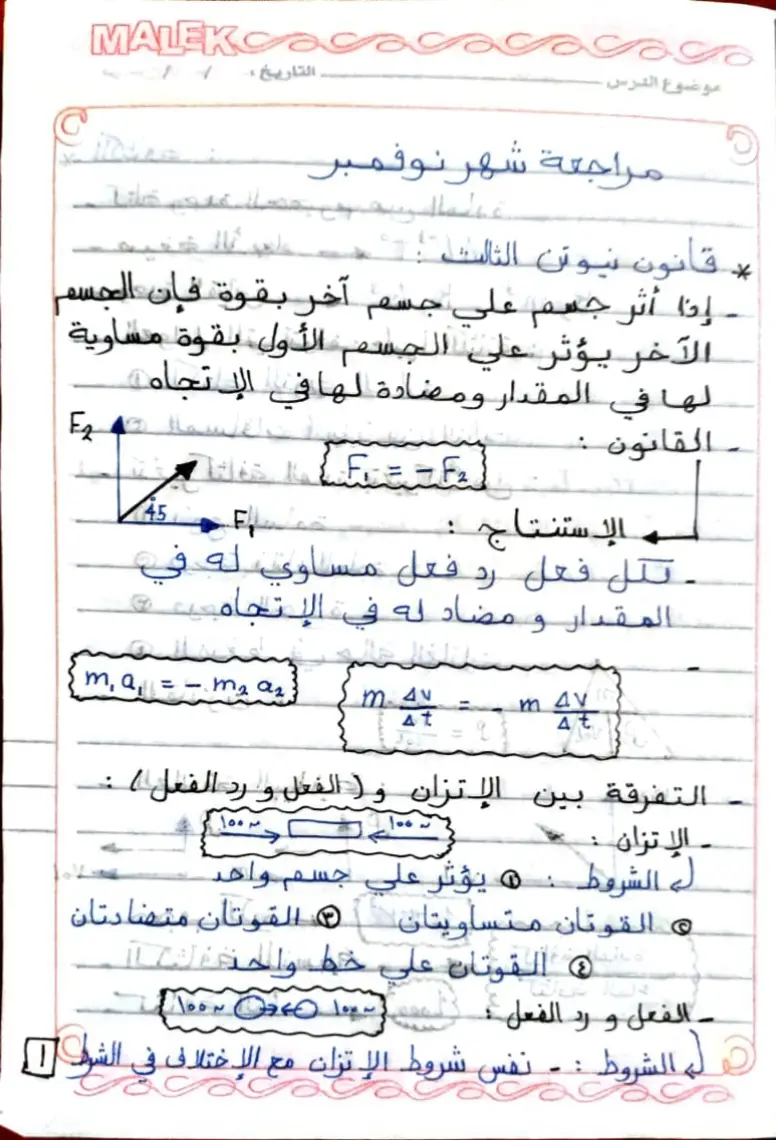 MALEK
موضوع الدرس التاريخ : / /
مراجعة شهر نوفمبر
* قانون نيوتن الثالث :
- إذا أثر جسم علي جسم آخر بقوة فإن الجسم
الآخر يؤثر علي الجسم الأول بقوة مساوية
لها في المقدار ومضادة لها في الإتجاه
- القانون :
F₁ = - F₂
F₂
45
F₁
الإستنتاج :
- لكل فعل رد فعل مساوي له في
المقدار و مضاد له في الإتجاه
-
m Δv/Δt = - m Δv/Δt
m₁ a₁ = - m₂ a₂
- التفرقة بين الإتزان و (الفعل و رد الفعل) :
- الإتزان :
100 N 100 N
الشروط : ① يؤثر علي جسم واحد
② القوتان متساويتان ③ القوتان متضادتان
④ القوتان علي خط واحد
- الفعل و رد الفعل :
100 N 100 N
الشروط : - نفس شروط الإتزان مع الإختلاف في الشرط
١